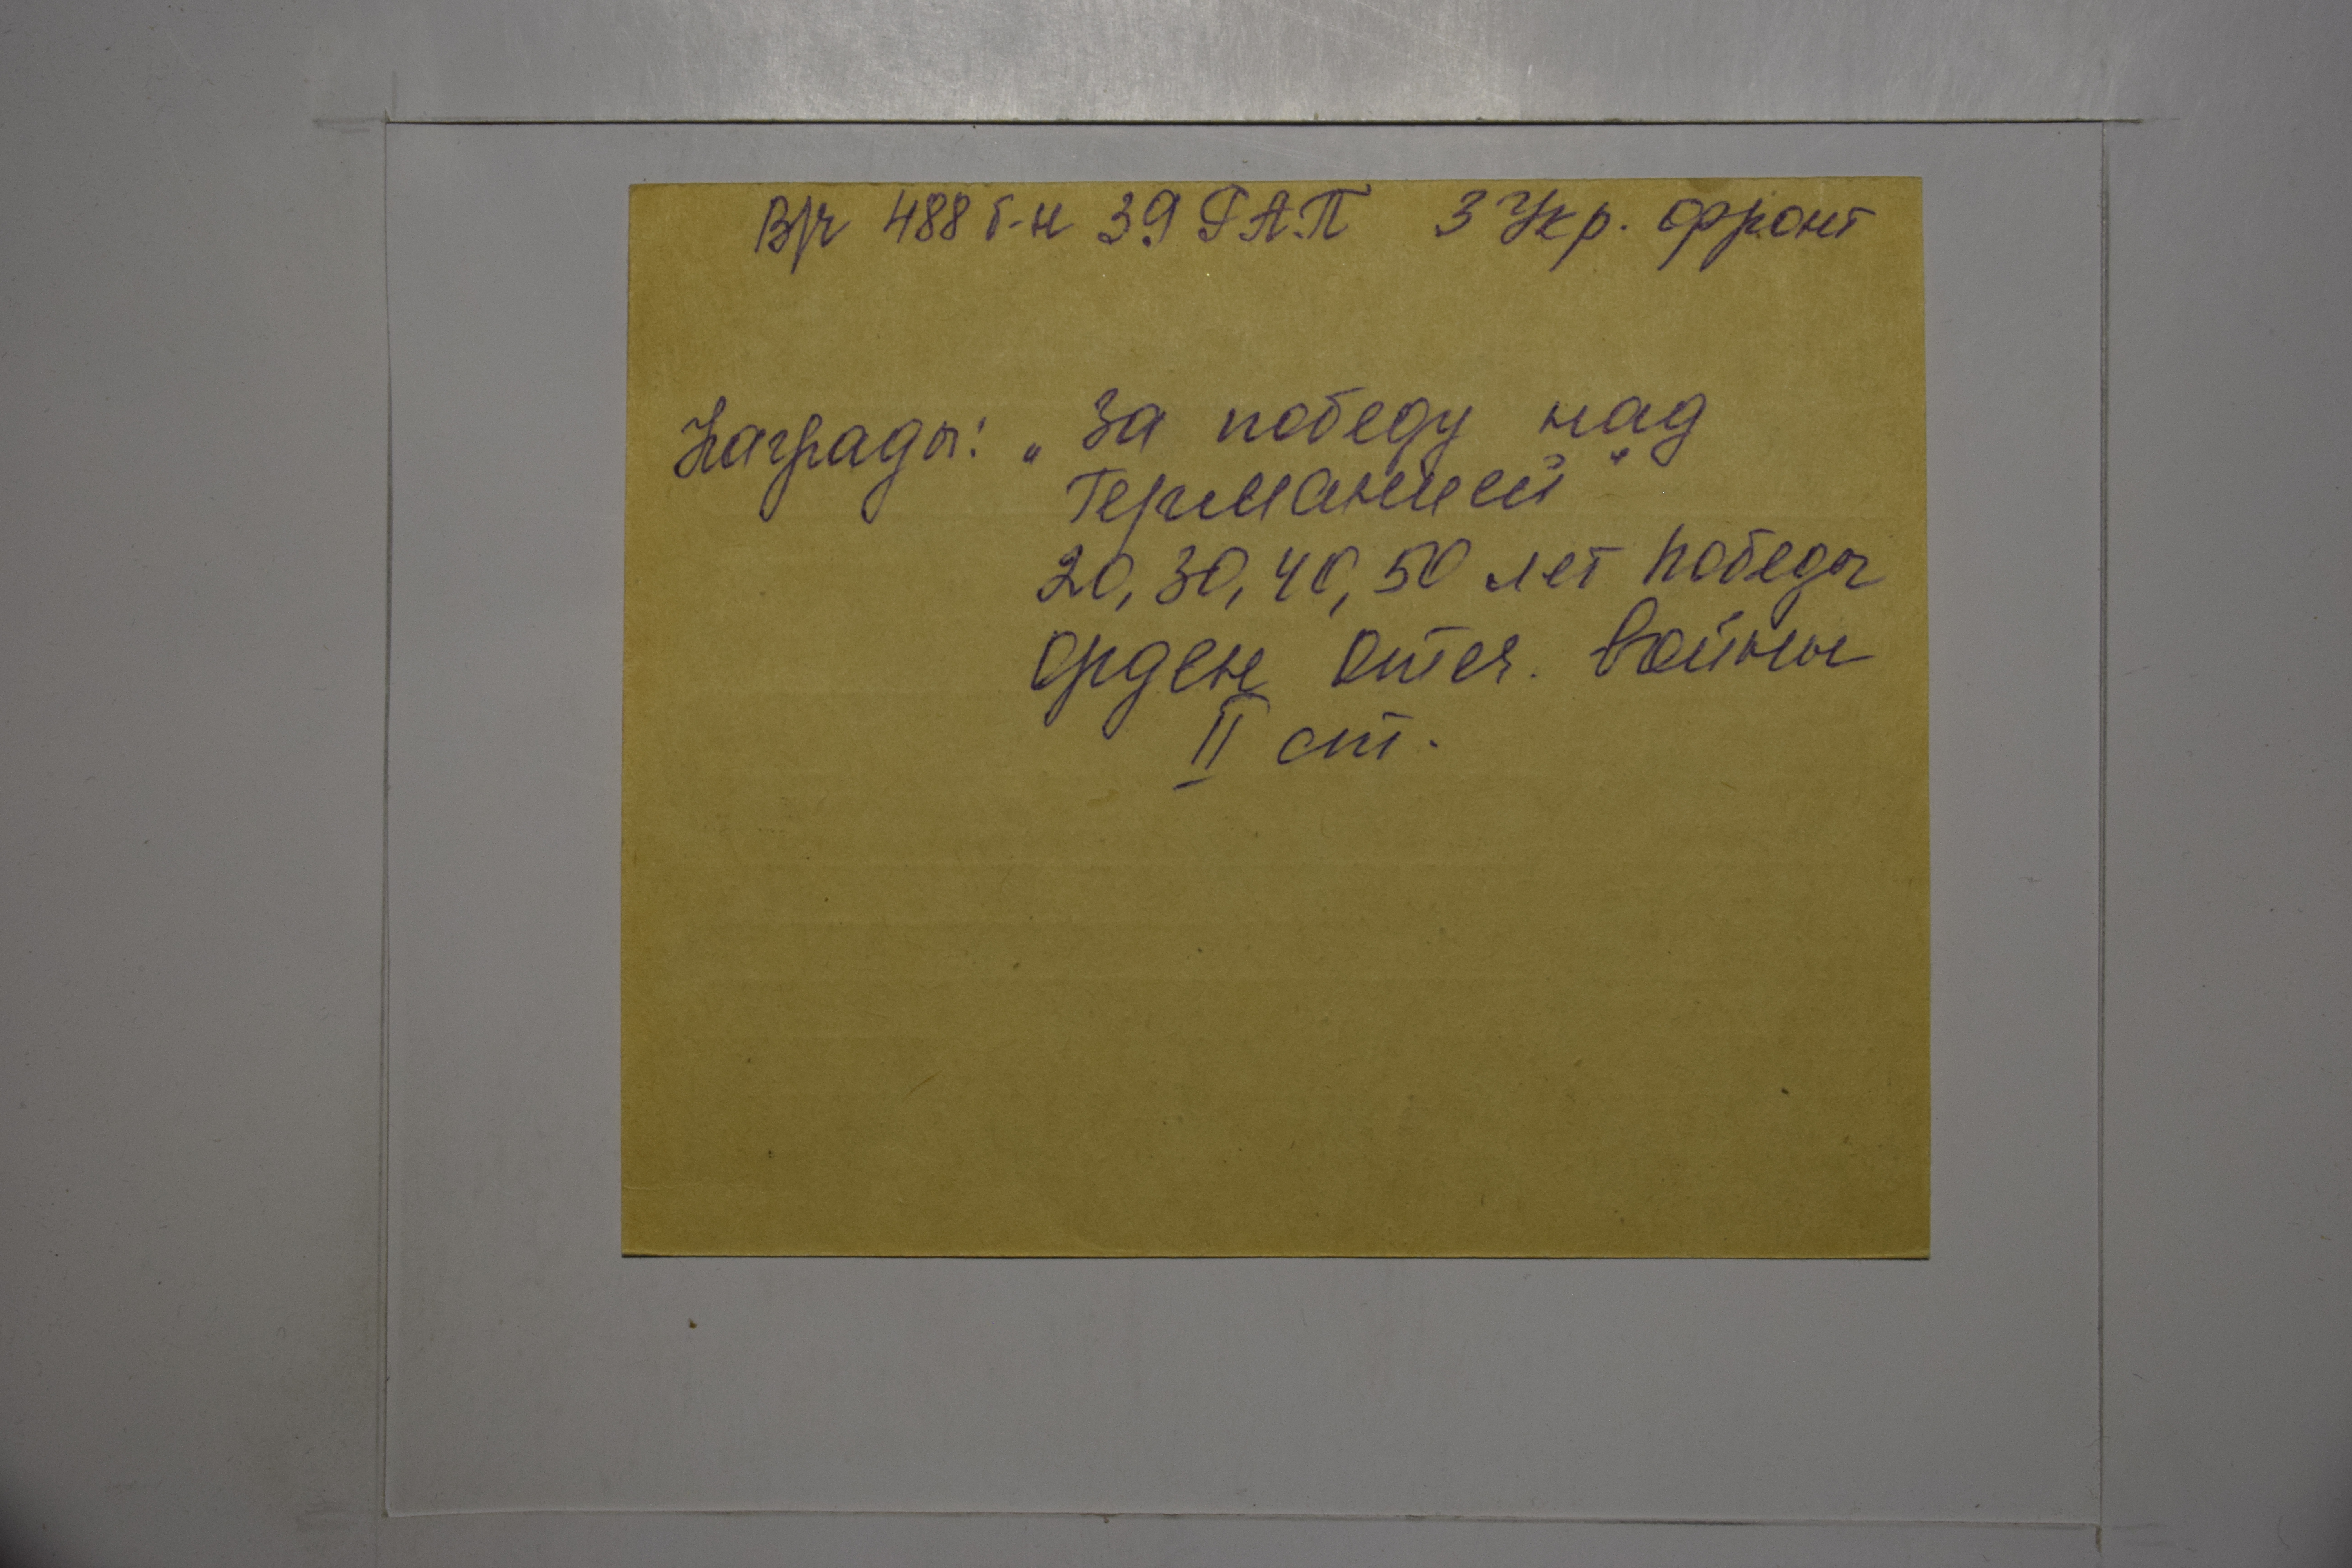 В/ч 488 б-н 39 ГАП 3 Укр. фронт
Награды: „За победу над
Германией"
20, 30, 40, 50 лет Победы
Орден Отеч. Войны
II ст.